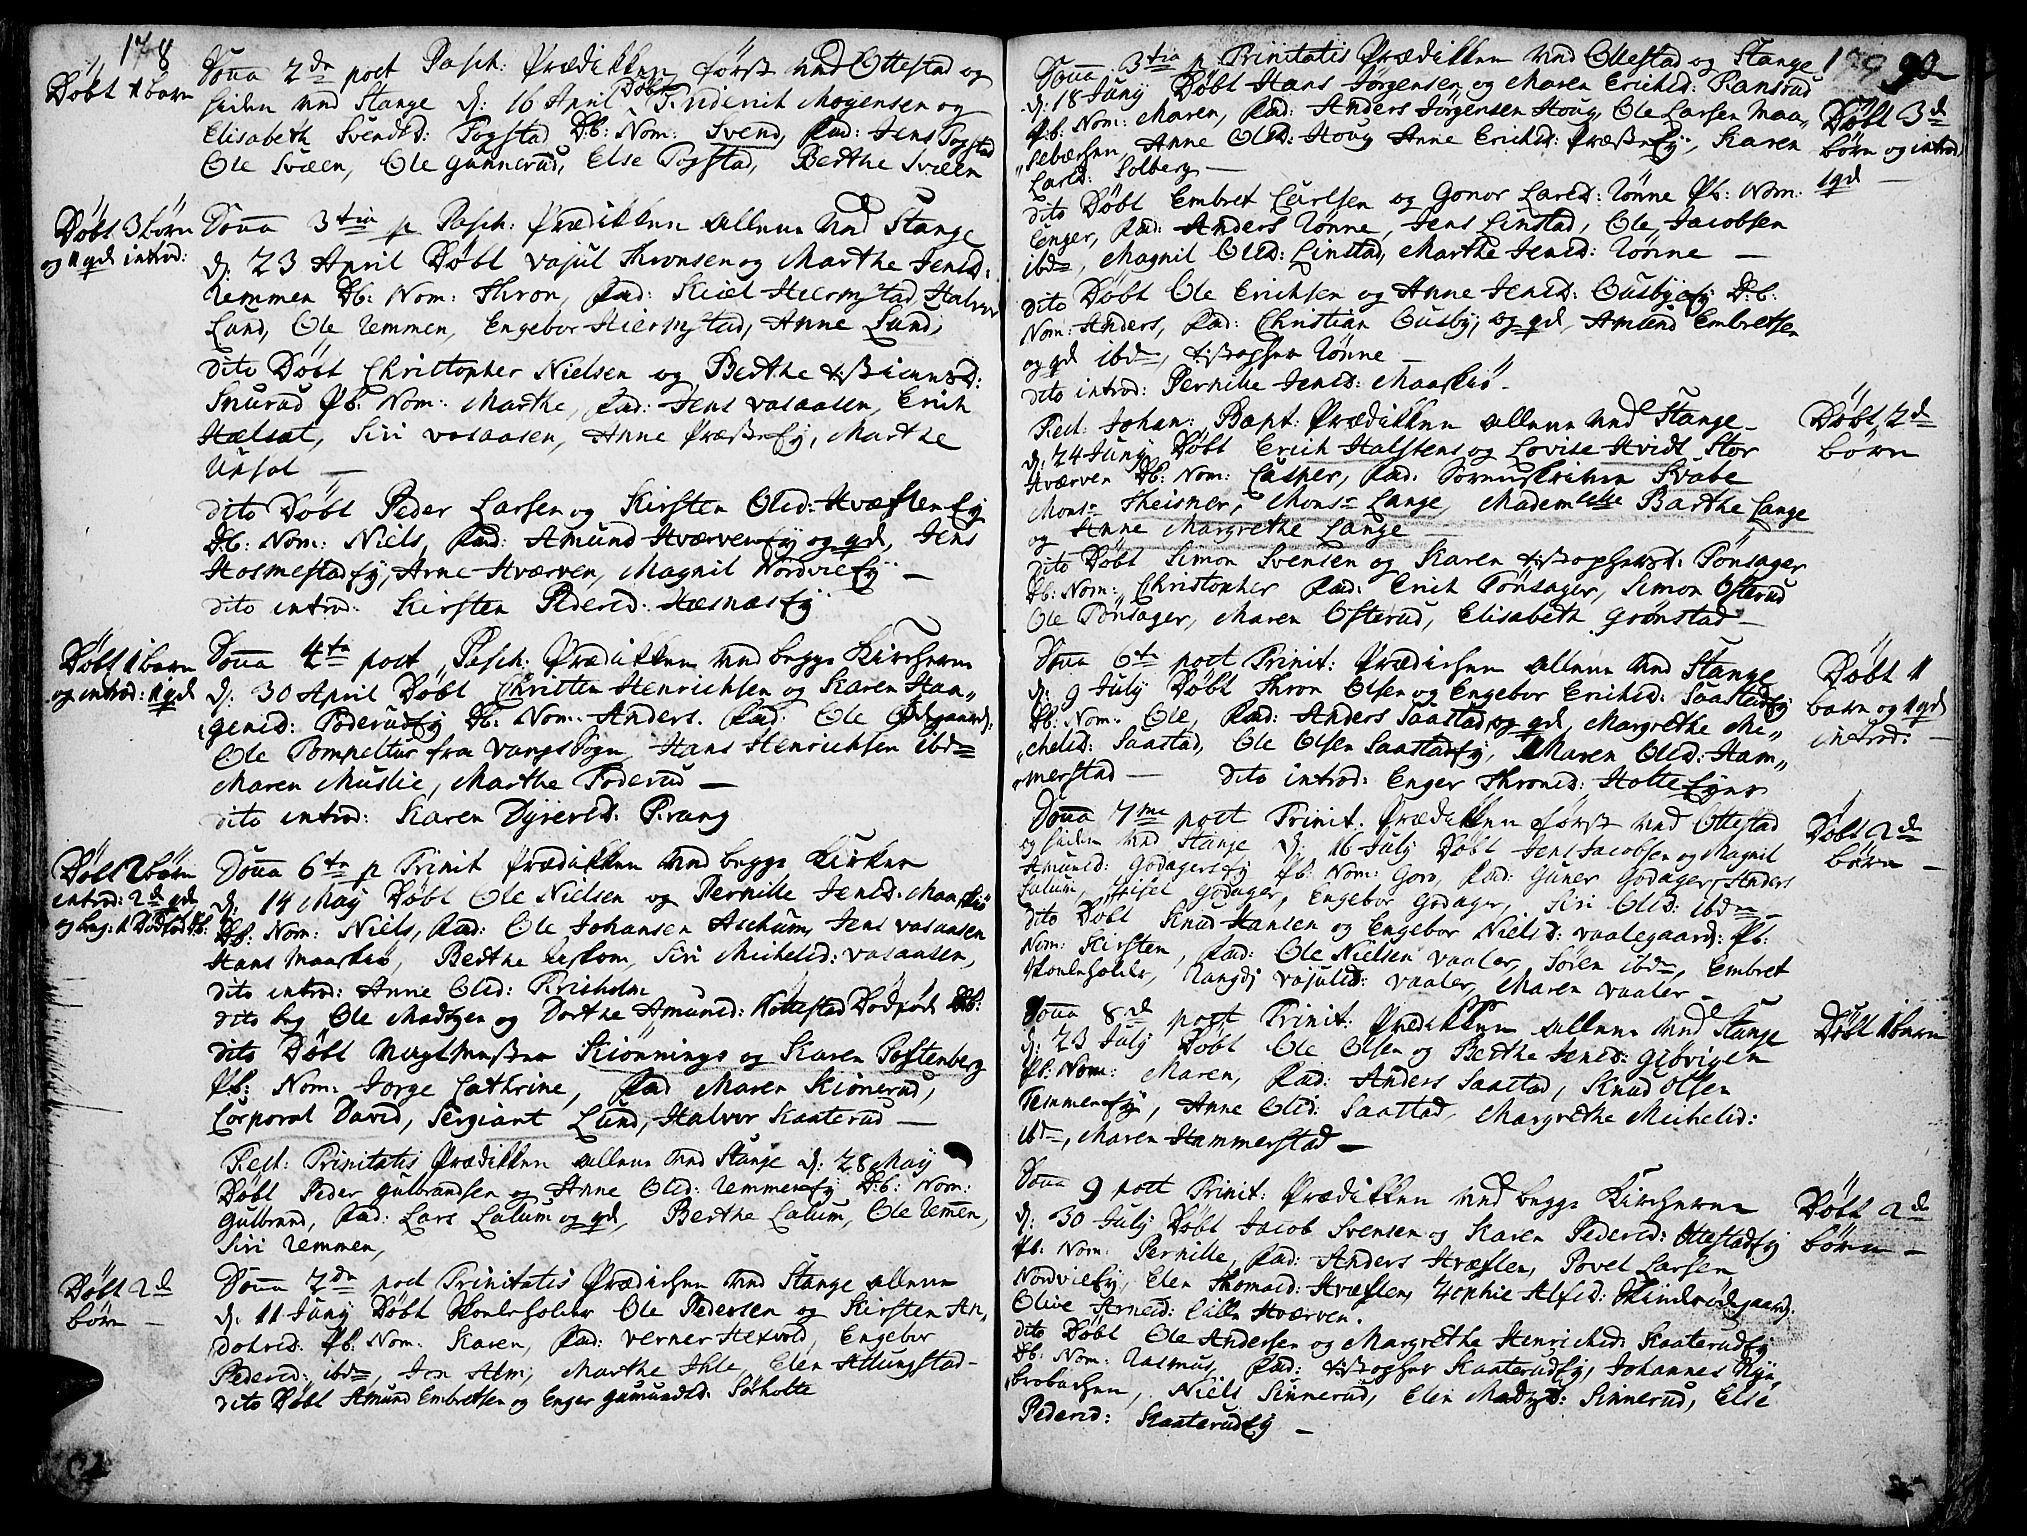 178
Døbt 1 barn
Doīca 2da post Pasch: Prædikken først ved Ottestad og
siden ved Stange d: 16 April Døbt Friderich Mogensen og
Elisabeth Svendsd: Pogstad Db: Nom: Svend, Fad: Jens Pogstad
Ole Svæen, Ole Gunnerud, Else Pogstad, Berthe Svæen
Døbt 3 børn
og 1 qd introd:
Doīca 3tia p Pasch: Prædikken allene ved Stange
d: 23 April Døbt Thronsen og Marthe Jensd:
Remmen Db: Nom: Thron, Fad: Kield Hiermstad, Halvor
Lund, Ole Remmen, Engebor Hiermstad, Anne Lund,
dito Døbt Christopher Nielsen og Berthe
Snurud Pb: Nom: Marthe, Fad: Jens vasaasen, Erich
Hælsæt, Siri vasaasen, Anne Præstey, Marthe
Uhsæt —
dito Døbt Peder Larsen og Kirsten Olsd: Hvæsleney
Db: Nom: Niels, Fad: Amund Hværveney og qd, Jens
Hosmestadey, Arne Hværven, Magnil Nordviey —
dito introd: Kirsten Pedersd: Hæsnæsey
Døbt 1 barn
og introd: 1 qd
Doīca 4ta post Pasch: Prædikken ved begge Kircherne
d: 30 April Døbt Christen Henrichsen og Karen Haa„
„gensd: Poderudey Db: Nom: Anders. Fad: Ole Ødegaard,
Ole Pompeltur fra Vangsogn, Hans Henrichsen ibdm
Maren Muslie, Marthe Poderud —
dito introd: Karen Dyresd: Prang
Døbt 2 børn
introd: 2de qd
og beg: 1 Dødfød Db:
Doīca 6ta p Trinit Prædikken ved begge Kirker
d: 14 May Døbt Ole Nielsen og Pernille Jensd: Maaskiø
Db: Nom: Niels, Fad: Ole Johansen Aschum, Jens vasaasen
Hans Maaskiø, Berthe Leskom, Siri Michelsd: vasaasen,
dito introd: Anne Olsd: Frisholm
dito beg Ole Madtzen og Dorthe Amunsd: Kottestad Dødfød Db:
dito Døbt Skiønnings og Karen Postenberg
Pb: Nom: Jorge Cathrine, Fad Maren Skiønerud,
Corporal David, Sergiant Lund, Halvor Kaaterud —
Fest: Trinitatis Prædikken allene ved Stange d: 28 May
Døbt Peder Gulbrandsen og Anne Olsd: Remmeney Db: Nom:
Gulbrand, Fad: Lars Lalum og qd, Berthe Lalum, Ole Remen,
Siri Remmen,
Døbt 2de
børn —
Doīca 2da post Trinitatis Prædichen ved Stange allene
d: 11 Juny Døbt Ole Pedersen og Kirsten An„
dorsd: Pb: Nom: Karen, Fad: Verner Hexvold, Engebor
Pedersd: ibdm, Jen Alm, Marthe Ihle, Elen Atlungstad —
dito Døbt Amund Embretsen og Enger Gumundsd: Sørholte
179
90
Doīca 3tia p Trinitatis Prædikken ved Ottestad og Stange
d: 18 Juny Døbt Hans Jørgensen og Maren Erichsd: Ransrud
Pb: Nom: Maren, Fad: Anders Jørgensen Houg, Ole Larsen Maa„
„sebæchen, Anne Olsd: Houg, Anne Erichsd: Præstey, Karen
Larsd: Solberg —
Døbt 3de
børn og introd:
1 qd —
dito Døbt Embret Carlsen og Gonor Larsd: Rønne Pb: Nom:
Enger, Fad: Anders Rønne, Jens Linstad, Ole Jacobsen
ibdm, Magnil Olsd: Linstad, Marthe Jensd: Rønne —
dito Døbt Ole Erichsen og Anne Jensd: Ousbyey Db:
Nom: Anders, Fad: Christian Ousby, og qd, Amund Embretsen
og qd ibdm, Rønne —
dito introd: Pernille Jensd: Maaskiø —
Døbt 2de
børn
Fest: Johan: Bapt: Prædikken allene ved Stange —
d: 24 Juny Døbt Erich Halstens og Lovise Hvidt Stor
Hværven Db: Nom: Casper, Fad: Svabe
Monsr Theisner, Monsr Lange, Mademlle Barthe Lange
og Anne Margrethe Lange —
dito Døbt Simon Svensen og Karen Pønsager
Db: Nom: Christopher Fad: Erich Pønsager, Simon Østerud
Ole Pønsager, Maren Østerud, Elisabeth Grønstad —
Døbt 1
barn og 1 qd
introd: —
Doīca 6ta post Trinit: Prædichen allene ved Stange
d: 9 July Døbt Thron Olsen og Engebor Erichsd: Saastadey
Db: Nom: Ole, Fad: Anders Saastad og qd, Margrethe Mi„
„chelsd: Saastad, Ole Olsen Saastadey, Maren Olsd: Ham„
„merstad — dito introd: Enger Thronsd: Holte Eyer
Døbt 2de
børn —
Doīca 7me post Trinit. Prædikken først ved Ottestad
og siden ved Stange d: 16 July Døbt Jens Jacobsen og Magnil
Amunsd: Godagersey Pb: Nom: Goro, Fad: Guner Godager, Anders
Lalum, Sisel Godager, Engebor Godager, Siri Olsd: ibdm —
dito Døbt Knud Hansen og Engebor Nielsd: Vaalegaard: Pb:
Nom: Kirsten, Fad: Ole Nielsen Vaaler, Søren ibdm, Embret
Rangdj Vaaler, Maren Vaaler —
Døbt 1 barn
Doīca 8de post Trinit: Prædikken allene ved Stange
d: 23 July Døbt Ole Olsen og Berthe Jensd: Giøvigen
Pb: Nom: Maren, Fad: Anders Saastad, Knud Olsen
Temmeney, Anne Olsd: Saastad, Margrethe Michelsd:
ibdm, Maren Hammerstad —
Døbt 2de
børn —
Doīca 9 post Trinit: Prædikken ved begge Kircherne
d: 30 July Døbt Jacob Svensen og Karen Pedersd: Ottestadey
Pb: Nom: Pernille, Fad: Anders Hvæslen, Povel Larsen
Nordviey, Elen Thomasd: Hvæslen, Zophie Alfsd:
Olive Arnesd: Lille Hværven.
dito Døbt Ole Andersen og Margrethe Henrichsd: Kaaterudey
Db: Nom: Rasmus, Fad: Kaaterudey, Johannes Nyn„
„brobachen, Niels Sinnerud, Elen Madzd: Sinnerud, Else
Pedersd: Kaaterudey —